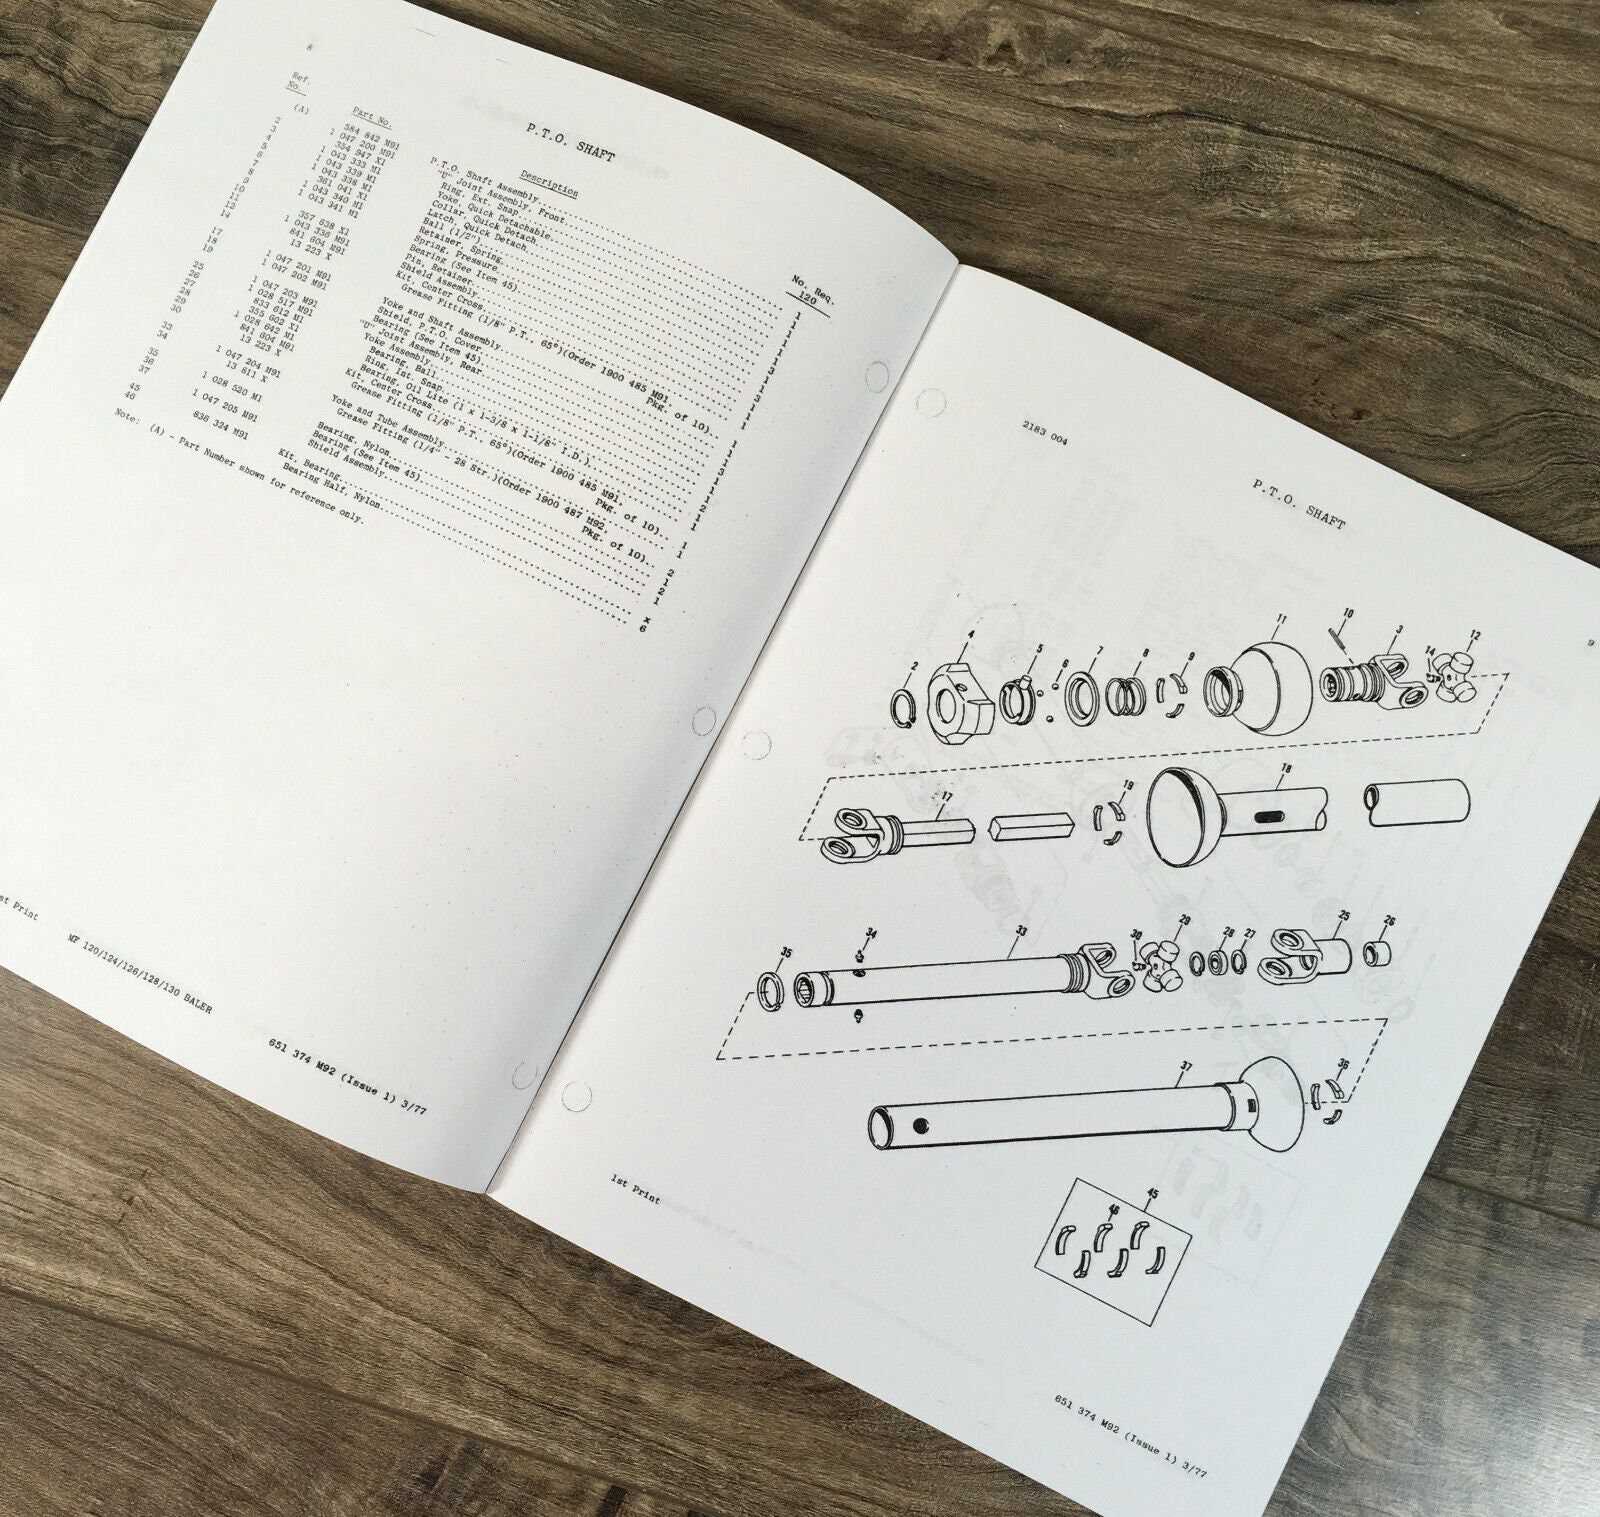 8
P.T.O. SHAFT
Ref. No. Part No. Description No. Req. 120
(A) 584 842 M91 P.T.O. Shaft Assembly 1
1 047 200 M91 "U" Joint Assembly, Front 1
2 354 947 X1 Ring, Ext. Snap 1
3 1 043 333 M1 Yoke, Quick Detachable
4 1 043 339 M1 Collar, Quick Detach.
5 1 043 338 M1 Latch, Quick Detach.
6 361 041 X1 Ball (1/2")
7 1 043 340 M1 Retainer, Spring
8 1 043 341 M1 Spring, Pressure
9 Bearing (See Item 45)
10 357 638 X1 Pin, Retainer
11 1 043 336 M91 Shield Assembly
12 841 604 M91 Kit, Center Cross
14 13 223 X Grease Fitting (1/8" P.T., 65°)(Order 1900 485 M91,
Pkg. of 10)
17 1 047 201 M91 Yoke and Shaft Assembly
18 1 047 202 M91 Shield, P.T.O. Cover
19 Bearing (See Item 45)
1 047 203 M91 "U" Joint Assembly, Rear
25 1 028 517 M91 Yoke Assembly
26 833 612 M1 Bearing, Ball
27 355 602 X1 Ring, Int. Snap
28 1 028 642 M1 Bearing, Oil Lite (1 x 1-3/8 x 1-1/8" I.D.)
29 841 604 M91 Kit, Center Cross
30 13 223 X Grease Fitting (1/8" P.T., 65°)(Order 1900 485 M91,
Pkg. of 10)
33 1 047 204 M91 Yoke and Tube Assembly 1
34 13 811 X Grease Fitting (1/4" - 28 Str.)(Order 1900 487 M92,
Pkg. of 10) 2
35 1 028 520 M1 Bearing, Nylon 1
36 Bearing (See Item 45) 2
37 1 047 205 M91 Shield Assembly 1
45 836 324 M91 Kit, Bearing x
46 Bearing Half, Nylon 6
Note: (A) - Part Number shown for reference only.
st Print
MF 120/124/126/128/130 BALER
651 374 M92 (Issue 1) 3/77
2183 004
P.T.O. SHAFT
9
2 4 5 6 7 8 9 11 10 3 14 12
17 19 18
35 34 33 30 29 28 27 25 26
37 36
46 45
1st Print
651 374 M92 (Issue 1) 3/77